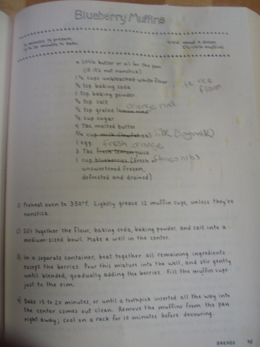 Blueberry Muffins
15 minutes to prepare,
15 to 20 minutes to bake
a little butter or oil for the pan
(if it's not nonstick)
1½ cups unbleached white flour
½ tsp baking soda
1 tsp baking powder
½ tsp salt
orange rind
½ cup sugar
4 Tbs melted butter
1 egg
fresh orange
1 cup blueberries (fresh
unsweetened frozen,
defrosted and drained)
rice flour
1) Preheat oven to 350°F. Lightly grease 12 muffin cups, unless they're
nonstick.
2) Sift together the flour, baking soda, baking powder, and salt into a
medium-sized bowl. Make a well in the center.
3) In a separate container, beat together all remaining ingredients
except the berries. Pour this mixture into the well, and stir gently
until blended, gradually adding the berries. Fill the muffin cups
just to the rim.
4) Bake 15 to 20 minutes, or until a toothpick inserted all the way
into the center comes out clean. Remove the muffins from the pan
right away; cool on a rack for 15 minutes before devouring.
BREADS